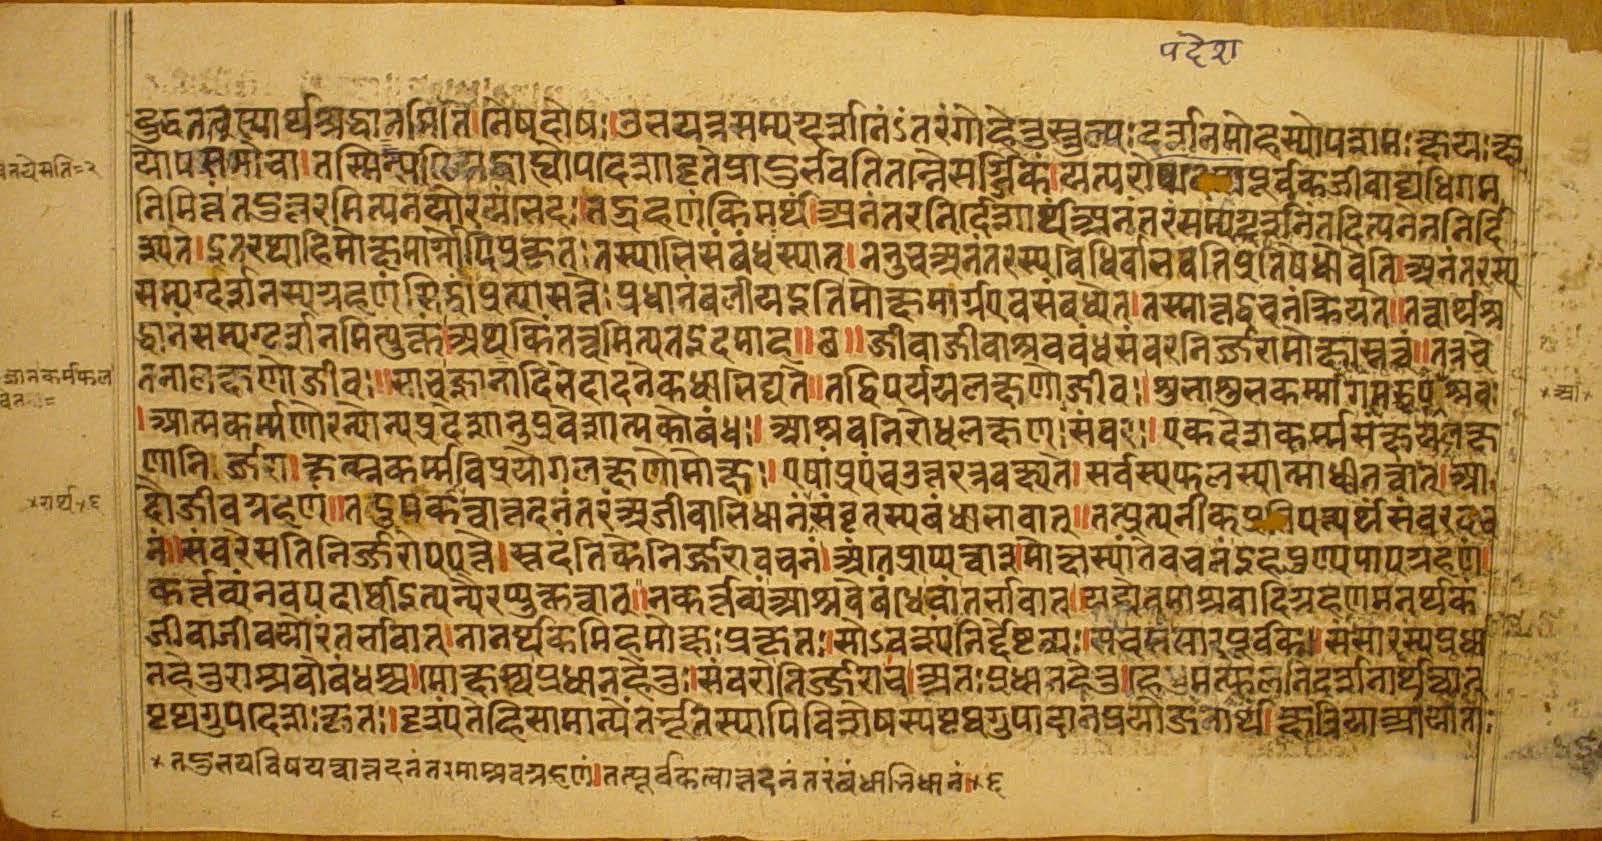 पदेश
द्बुद्धतत्वस्यार्थश्रद्धानमिति। नैष दोषः। उभयत्र सम्यग्दर्शनेंऽतरंगो हेतुस्तुल्यः। दर्शनमोहस्योपशमः क्षयः क्ष
योपशमो वा। तस्मिन्सति यद्बाह्योपदेशादृते प्रादुर्भवति तन्नैसर्गिकं। यत्परोपदेशपूर्वकजीवाद्यधिगम
निमित्तं तदुत्तरमित्यनयोरयं भेदः। तद्ग्रहणं किमर्थं। अनंतरनिर्देशार्थं अनंतरं सम्यग्दर्शनं तदित्यनेन निर्दि
श्यते। इतरथा हि मोक्षमार्गोपि प्रकृतः तस्याभिसंबंधः स्यात्। ननु च अनंतरस्य विधिर्वा भवति प्रतिषेधो वेति। अनंतरस्य
सम्यग्दर्शनस्य ग्रहणं सिद्धं। प्रत्यासत्तेः प्रधानं बलीय इति मोक्षमार्ग एव संबध्येत। तस्मात्तद्वचनं क्रियते॥ तत्वार्थश्र
द्धानं सम्यग्दर्शनमित्युक्तं। अथ किं तत्त्वमित्यत इदमाह॥ ७॥ जीवाजीवाश्रवबंधसंवरनिर्जरामोक्षास्तत्वं॥ तत्र चे
तनालक्षणो जीवः॥ सा च ज्ञानादिभेदादनेकधा भिद्यते॥ तद्विपर्ययलक्षणोजीवः। शुभाशुभकर्मागमद्वाररूप आश्रवः
। आत्मकर्मणोरन्योन्यप्रदेशानुप्रवेशात्मको बंधः॥ आश्रवनिरोधलक्षणः संवरः॥ एकदेशकर्मसंक्षयलक्ष
णा निर्जरा। कृत्स्नकर्मविप्रयोगलक्षणो मोक्षः॥ एषां प्रपंच उत्तरत्र वक्ष्यते। सर्वस्य फलस्यात्माधीनत्वात्। आ
दौ जीवग्रहणं॥ तदुपकारत्वात्तदनंतरं अजीवाभिधानं संवृतस्य बंधाभावात्॥ तत्प्रत्यनीकप्रतिपत्त्यर्थं संवरवच
नं॥ संवरे सति निर्जरोपपत्तेः। स्तदंतिके निर्जरावचनं। अंते प्राप्यत्वात् मोक्षस्यांते वचनं इह पुण्यपापग्रहणं।
कर्त्तव्यं नवपदार्था इत्यन्यैरप्युक्तत्वात्॥ न कर्त्तव्यं आश्रवे बंधे चांतर्भावात्॥ यद्येवमाश्रवादिग्रहणमनर्थकं
जीवाजीवयोरंतर्भावात्। नानर्थकमिह मोक्षः प्रकृतः। सोऽवश्यं निर्देष्टव्यः। स च संसारपूर्वकः। संसारस्य प्रधा
नहेतुराश्रवो बंधश्च। मोक्षस्य प्रधानहेतुः। संवरो निर्जरा च। अतः प्रधानहेतुहेतुमत्फलनिदर्शनार्थत्वात्
पृथगुपदेशः कृतः। दृश्यते हि सामान्येंतर्भूतस्यापि विशेषस्य पृथगुपादानप्रयोजनार्थं। क्षत्रिया आयाताः
× तदुभयविषयत्वात्तदनंतरमाश्रवग्रहणं। तत्पूर्वकत्वात्तदनंतरं बंधाभिधानं॥ ६